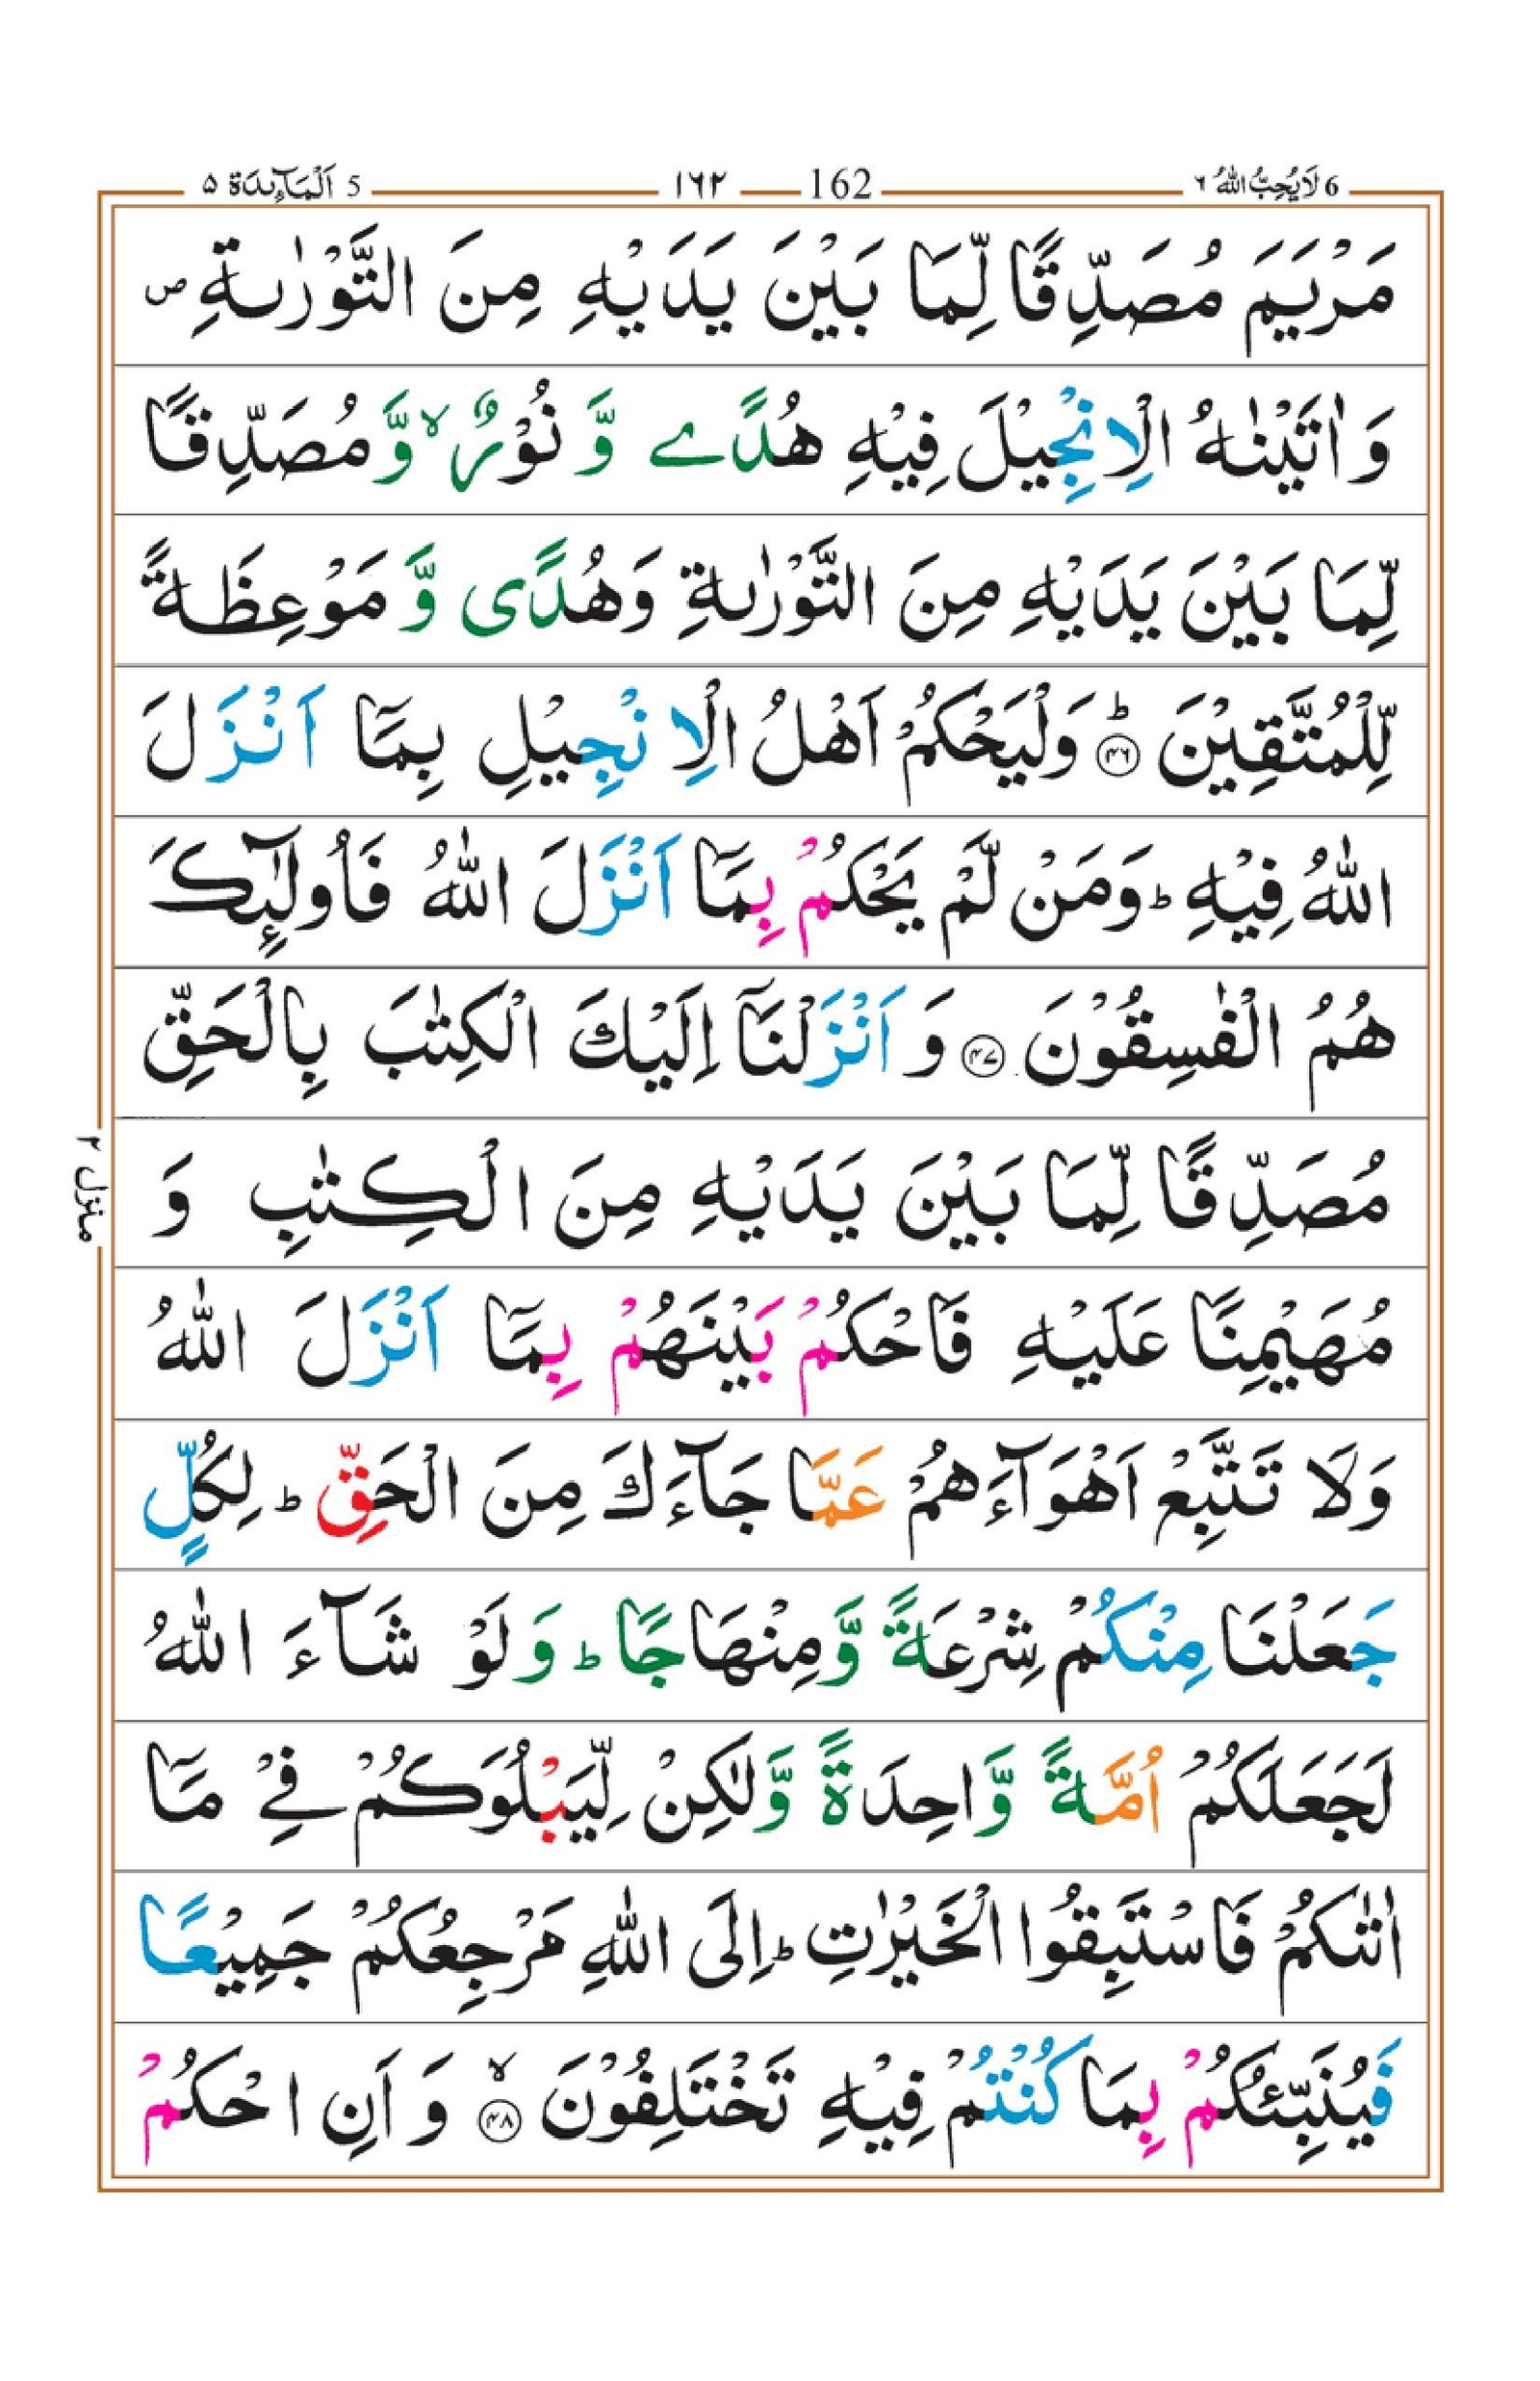 6 لَا يُحِبُّ اللّٰهُ ٦ 162 ١٦٢ 5 اَلْمَآئِدَة ٥
مَرْيَمَ مُصَدِّقًا لِّمَا بَيْنَ يَدَيْهِ مِنَ التَّوْرٰىةِ ص
وَ اٰتَيْنٰهُ الْاِنْجِيْلَ فِيْهِ هُدًے وَّ نُوْرٌ ۙ وَّ مُصَدِّقًا
لِّمَا بَيْنَ يَدَيْهِ مِنَ التَّوْرٰىةِ وَهُدًى وَّ مَوْعِظَةً
لِّلْمُتَّقِيْنَ ؕ ﴿۴۶﴾ وَلْيَحْكُمْ اَهْلُ الْاِنْجِيْلِ بِمَآ اَنْزَلَ
اللّٰهُ فِيْهِ ؕ وَمَنْ لَّمْ يَحْكُمْ بِمَآ اَنْزَلَ اللّٰهُ فَاُولٰٓئِكَ
هُمُ الْفٰسِقُوْنَ ﴿۴۷﴾ وَ اَنْزَلْنَآ اِلَيْكَ الْكِتٰبَ بِالْحَقِّ
مُصَدِّقًا لِّمَا بَيْنَ يَدَيْهِ مِنَ الْكِتٰبِ وَ
مُهَيْمِنًا عَلَيْهِ فَاحْكُمْ بَيْنَهُمْ بِمَآ اَنْزَلَ اللّٰهُ
وَلَا تَتَّبِعْ اَهْوَآءَهُمْ عَمَّا جَآءَكَ مِنَ الْحَقِّ ؕ لِكُلٍّ
جَعَلْنَا مِنْكُمْ شِرْعَةً وَّمِنْهَاجًا ؕ وَلَوْ شَآءَ اللّٰهُ
لَجَعَلَكُمْ اُمَّةً وَّاحِدَةً وَّلٰكِنْ لِّيَبْلُوَكُمْ فِيْ مَآ
اٰتٰىكُمْ فَاسْتَبِقُوا الْخَيْرٰتِ ؕ اِلَى اللّٰهِ مَرْجِعُكُمْ جَمِيْعًا
فَيُنَبِّئُكُمْ بِمَا كُنْتُمْ فِيْهِ تَخْتَلِفُوْنَ ۙ ﴿۴۸﴾ وَ اَنِ احْكُمْ
منزل ٢